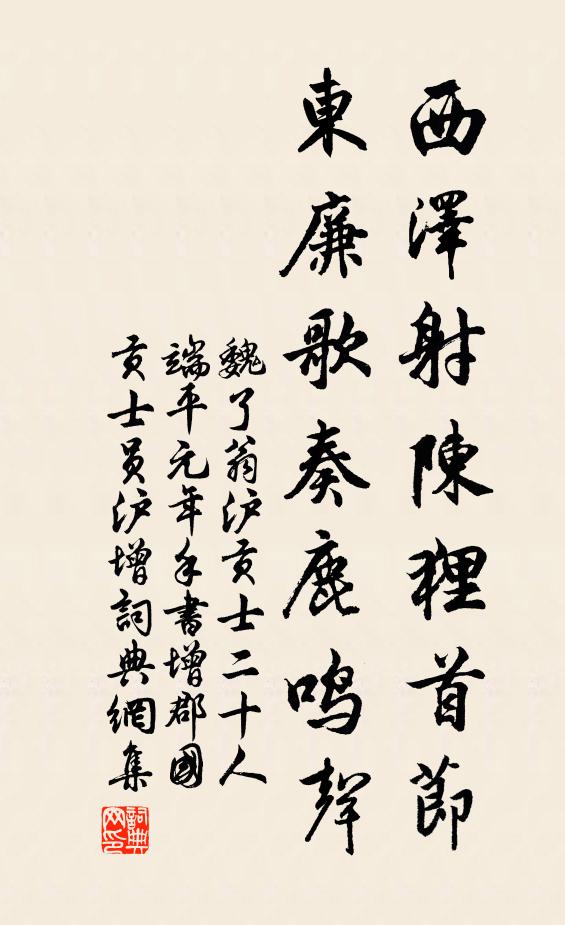 西澤射陳貍首節
東廉歌奏鹿鳴聲
魏了翁沪貢士二十人
端平元年手書增郡國
貢士員沪增詞典網集
詞典網印